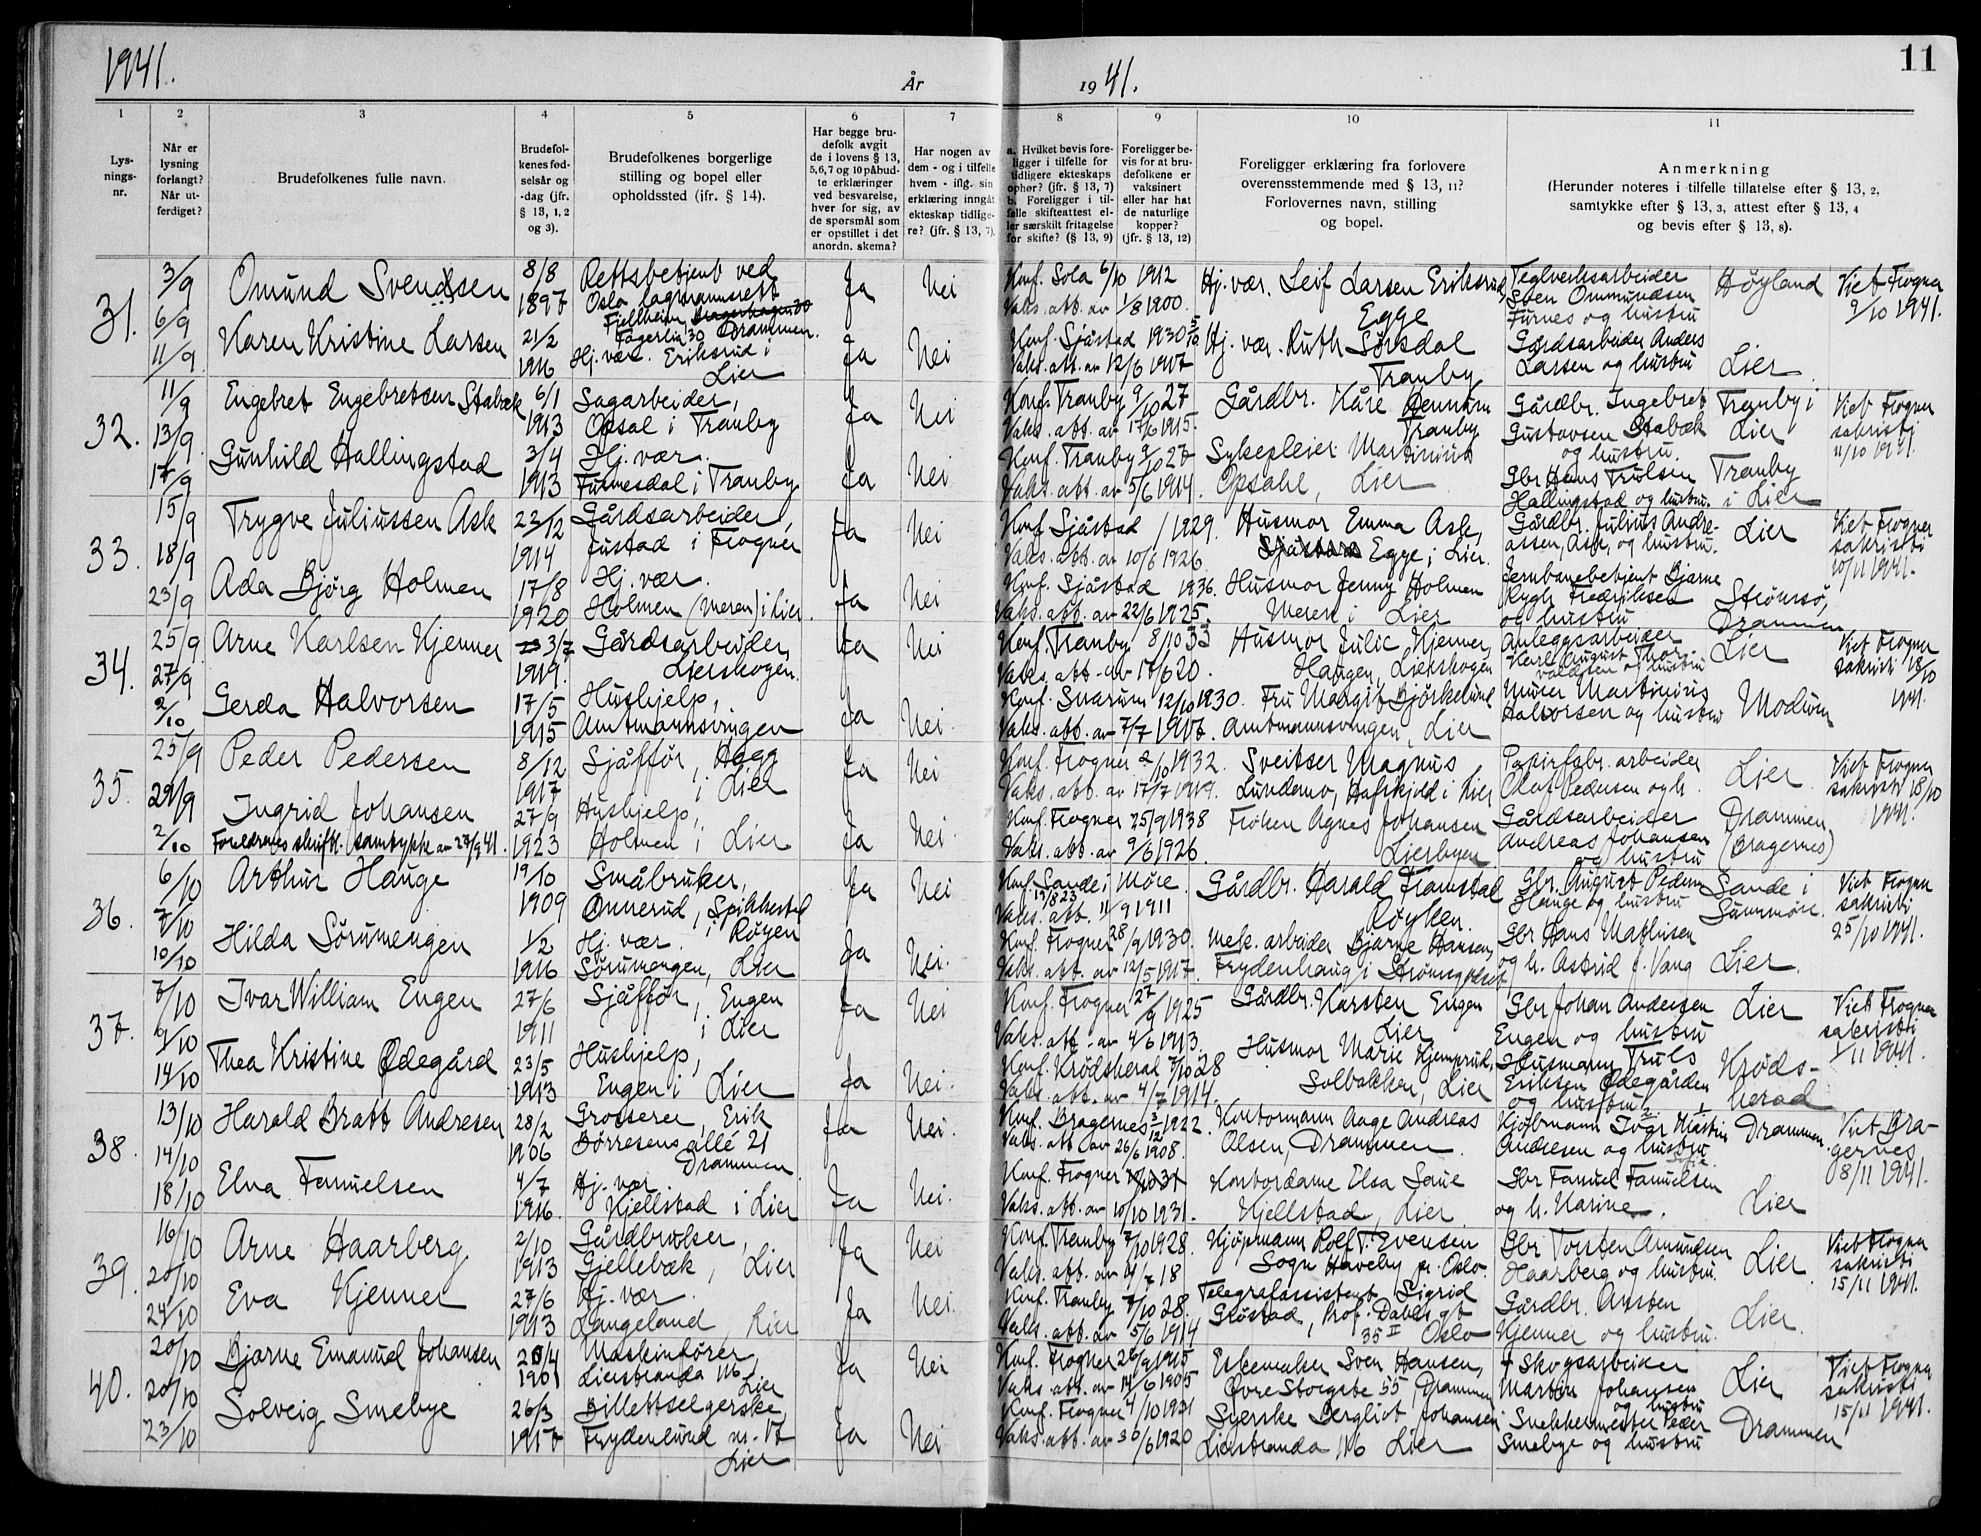 1941.
År
1941.
11
1
2
3
4
5
6
7
8
9
10
11
Lys-
nings-
nr.
Når er
lysning
forlangt?
Når ut-
ferdiget?
Brudefolkenes fulle navn.
Brudefol-
kenes fød-
selsår og
-dag (jfr.
§ 13, 1, 2
og 3).
Brudefolkenes borgerlige
stilling og bopel eller
opholdssted (jfr. § 14).
Har begge bru-
defolk avgit
de i lovens § 13,
5, 6, 7 og 10 påbud-
te erklæringer
ved besvarelse,
hver for sig, av
de spørsmål som
er opstillet i det
anordn. skema?
Har nogen av
dem - og i tilfelle
hvem - iflg. sin
erklæring inngåt
ekteskap tidlige-
re? (jfr. § 13, 7).
a. Hvilket bevis fore-
ligger i tilfelle for
tidligere ekteskaps
ophør? (jfr. § 13, 7)
b. Foreligger i til-
felle skifteattest el-
ler særskilt fritagelse
for skifte? (§ 13, 9)
Foreligger be-
vis for at bru-
defolkene er
vaksinert
eller har hat
de naturlige
kopper?
(jfr. § 13, 12)
Foreligger erklæring fra forlovere
overensstemmende med § 13, 11?
Forlovernes navn, stilling
og bopel.
Anmerkning
(Herunder noteres i tilfelle tillatelse efter § 13, 2,
samtykke efter § 13, 3, attest efter § 13, 4
og bevis efter § 13, 8).
31.
3/9
6/9
11/9
Omund Svendsen
8/8
1897
Rettsbetjent ved
Oslo lagmannsrett
Fjellheim
Fagerlia 30 Drammen.
Ja
Nei
Konf. Sola 6/10 1912
Vaks. att. av 1/8 1900.
Hj. vær. Leif Larsen Eriksrud,
Egge
Teglverksarbeider
Sven Ommundsen
Furnes og hustru
Høyland
Viet Frogner
9/10 1941.
Karen Kristine Larsen
21/2
1916
Hj. vær. Eriksrud i
Lier
Ja
Nei
Konf. Sjåstad 1930 5/10
Vaks. att. av 12/6 1917
Hj. vær. Ruth Sørsdal
Tranby
Gårdsarbeider Anders
Larsen og hustru
Lier
32.
11/9
13/9
17/9
Engebret Engebretsen Stabæk
6/1
1913
Sagarbeider,
Opsal i Tranby
Ja
Nei
Konf. Tranby 9/10 27
Vaks. att. av 17/6 1915.
Gårdbr. Kåre Gunnum
Tranby
Gårdbr. Ingebret
Gustavsen Stabæk
og hustru.
Tranby i
Lier
Viet Frogner
sakristi
11/10 1941.
Gunhild Hallingstad
3/4
1913
Hj. vær.
Furnesdal i Tranby
Ja
Nei
Konf. Tranby 9/10 27
Vaks. att. av 5/6 1914.
Sykepleier Martinius
Opsahl, Lier
Gbr Hans Trulsen
Hallingstad og hustru.
Tranby
i Lier
33.
15/9
18/9
23/9
Trygve Juliussen Ask
23/12
1914
Gårdsarbeider,
Justad i Frogner
Ja
Nei
Konf. Sjåstad / 1929.
Vaks. att. av 10/6 1926
Husmor Emma Ask,
Egge i Lier.
Gårdbr. Julius Andre-
assen, Ask, og hustru.
Lier
Viet Frogner
sakristi
10/11 1941.
Ada Bjørg Holmen
17/8
1920
Hj. vær.
Holmen (Meren) i Lier.
Ja
Nei
Konf. Sjåstad 1936.
Vaks. att. av 22/6 1925.
Husmor Jenny Holmen
Meren i Lier
Jernbanebetjent Bjarne
Rygh Fredriksen
og hustru
Strømsø,
Drammen
34.
25/9
27/9
2/10
Arne Karlsen Kjenner
3/7
1919.
Gårdsarbeider,
Lierskogen.
Ja
Nei
Konf. Tranby 8/10 33
Vaks. att. av 17/6 20.
Husmor Julie Kjenner,
Haugen, Lierskogen
Anleggsarbeider
Karl August Thor-
valdsen og hustru
Lier
Viet Frogner
sakristi 18/10
1941.
Gerda Halvorsen
17/5
1915
Hushjelp,
Amtmannsvingen
Ja
Nei.
Konf. Snarum 12/10 1930.
Vaks. att. av 7/7 1917.
Fru Margit Bjørkelund
Amtmannsvingen, Lier
Murer Martinius
Halvorsen og hustru
Modum
35.
25/9
29/9
2/10
Peder Pedersen
8/12
1917
Sjåffør, Hegg
i Lier
Ja
Nei
Konf. Frogner 2/10 1932.
Vaks. att. av 17/7 1919.
Sveitser Magnus
Lundemo, Hafskjold i Lier
Papirfabr. arbeider
Olaf Pedersen og h.
Lier
Viet Frogner
sakristi 18/10
1941.
Ingrid Johansen
Foreldrenes skriftl. samtykke av 27/9 41.
27/9
1923
Hushjelp,
Holmen i Lier
Ja
Nei.
Konf. Frogner 25/9 1938
Vaks. att. av 9/6 1926.
Frøken Agnes Johansen
Lierbyen
Gårdsarbeider
Andreas Johansen
og hustru
Drammen
(Bragernes)
36.
6/10
7/10
10/10
Arthur Hauge
19/10
1909
Småbruker,
Onnerud, Spikkestad
i Røyen
Ja
Nei
Konf. Sande i Møre.
19/8 23
Vaks. att. 11/9 1911
Gårdbr. Harald Framstad
Røyken.
Gbr. August Peder
Hauge og hustru
Sande i
Sunnmøre.
Viet Frogner
sakristi
25/10 1941.
Hilda Sørumengen
1/2
1916
Hj. vær.
Sørumengen, Lier
Ja
Nei.
Konf. Frogner 28/9 1930.
Vaks. att. av 12/5 1917.
Mek. arbeider Bjarne Hansen,
Frydenhaug i Strømsgodset
Gbr Hans Mathisen
og h. Astrid f. Vang
Lier.
37.
7/10
9/10
14/10
Ivar William Engen
27/6
1911
Sjåffør, Engen
i Lier
Ja
Nei
Konf. Frogner 27/9 1925
Vaks. att. av 4/6 1913.
Gårdbr. Karsten Engen
Lier
Gbr Johan Andersen
Engen og hustru
Lier
Viet Frogner
sakristi
1/11 1941.
Thea Kristine Ødegård
23/5
1913
Hushjelp,
Engen i Lier
Ja
Nei.
Konf. Krødsherad 7/10 28
Vaks. att. av 4/7 1914.
Husmor Marie Kjemperud,
Solbakken, Lier
Husmann Truls
Eriksen Ødegården
og hustru
Krøds-
herad
38.
13/10
14/10
18/10
Harald Bratt Andresen
28/2
1906
Grosserer, Erik
Børresens allé 21
Drammen
Ja
Nei.
Konf. Bragernes 3/12 1922.
Vaks. att. av 26/6 1908.
Kontormann Aage Andreas
Olsen, Drammen
Kjøbmann Ivar Martin
Andresen og hustru
Drammen.
Viet Bra-
gernes
08/11 1941.
Elna Famuelsen
4/7
1916.
Hj. vær
Kjellstad i Lier
Ja
Nei.
Konf. Frogner
Vaks. att. av 10/10 1931.
Kontordame Elsa Saue
Kjellstad, Lier.
Gbr Famuel Famuelsen
og h. Karine.
Lier
39.
16/10
20/10
24/10
Arne Haarberg
2/10
1913
Gårdbruker,
Gjellebæk, Lier
Ja
Nei
Konf. Tranby 7/10 1928.
Vaks. att. av 4/7 18
Kjøpmann Rolf T. Evensen
Sogn Haveby pr. Oslo.
Gbr Torsten Amundsen
Haarberg og hustru.
Lier
Viet Frogner
sakristi
15/11 1941.
Eva Kjenner
27/6
1913
Hj. vær.
Langeland, Lier
Ja
Nei.
Konf. Tranby 7/10 28.
Vaks. att. av 5/6 1914
Telegrafassistent Sigrid
Grøstad, Prof. Dahls gt
35 II Oslo
Gårdbr. Amsten
Kjenner og hustru.
Lier.
40.
20/10
20/10
23/10
Bjarne Emanuel Johansen
20/4
1901
Maskinfører,
Lierstranda 116
Lier
Ja
Nei
Konf. Frogner 26/9 1915
Vaks. att. av 14/6 1905
Eskemaker Sven Hansen,
Øvre Storgate 55 Drammen
+ Skogsarbeider
Martin Johansen
og hustru
Lier
Viet Frogner
sakristi
15/11 1941.
Solveig Smebye
26/3
Billettselgerske,
Frydenlund nr. 17
Lier
Ja
Nei
Konf. Frogner 4/10 1931
Vaks. att. av 30/6 1920
Syerske Bergliot Johansen
Lierstranda 116 Lier
Snekkermester Peder
Smebye og hustru
Drammen